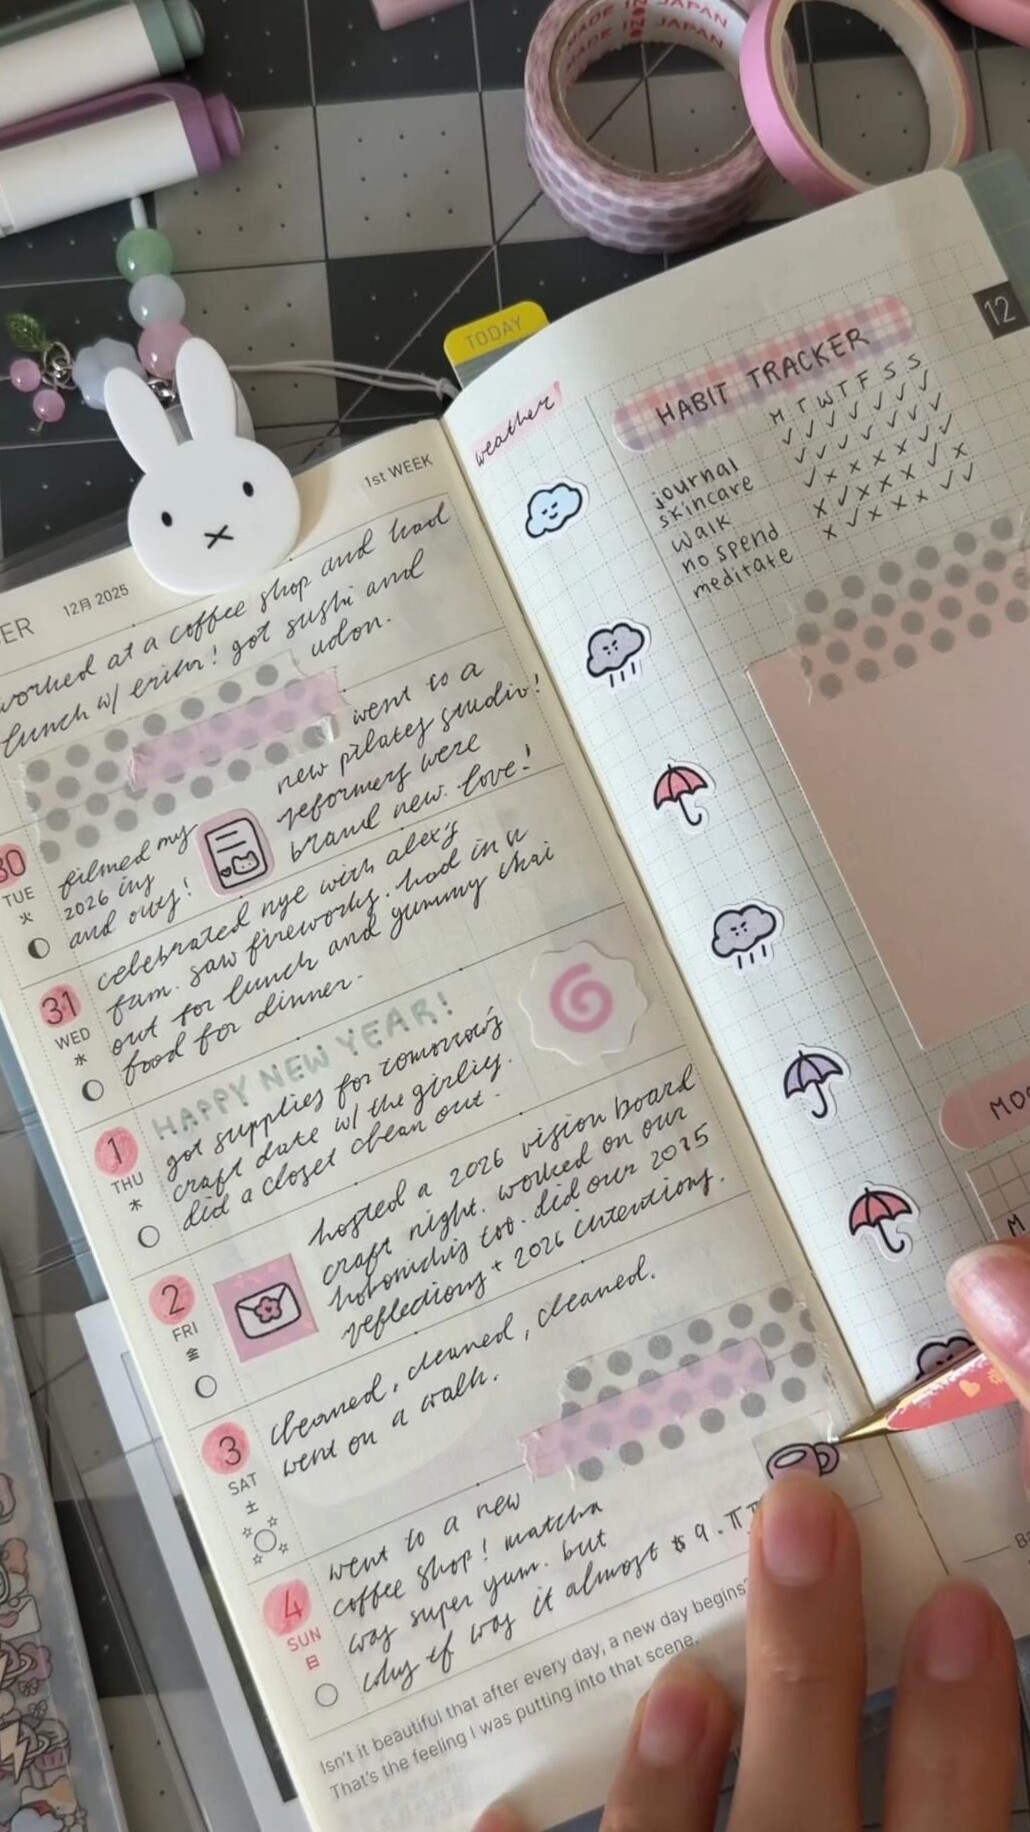 MADE IN JAPAN
MADE IN JAPAN
TODAY
12
1st WEEK
12月 2025
worked at a coffee shop and had
lunch w/ got sushi and
udon.
30
TUE
火
went to a
new pilates studio!
reformers were
brand new. love!
filmed my
2026 ins
and outs!
31
WED
水
celebrated nye with alex's
fam. saw fireworks. had in n
out for lunch and yummy thai
food for dinner.
1
THU
木
HAPPY NEW YEAR!
got supplies for tomorrow's
craft date w/ the girlies.
did a closet clean out.
2
FRI
金
hosted a 2026 vision board
craft night. worked on our
hobonichis too. did our 2025
reflections + 2026 intentions.
3
SAT
土
cleaned, cleaned, cleaned.
went on a walk.
4
SUN
日
went to a new
coffee shop! matcha
was super yum. but
why tf was it almost $9.
Isn't it beautiful that after every day, a new day begins?
That's the feeling I was putting into that scene.
weather
HABIT TRACKER
M T W T F S S
journal ✓ ✓ ✓ ✓ ✓ ✓ ✓
skincare ✓ ✓ ✓ ✓ ✓ ✓ ✓
walk ✓ x x x x ✓ ✓
no spend x ✓ x x x ✓ x
meditate x ✓ x x x ✓ ✓
M